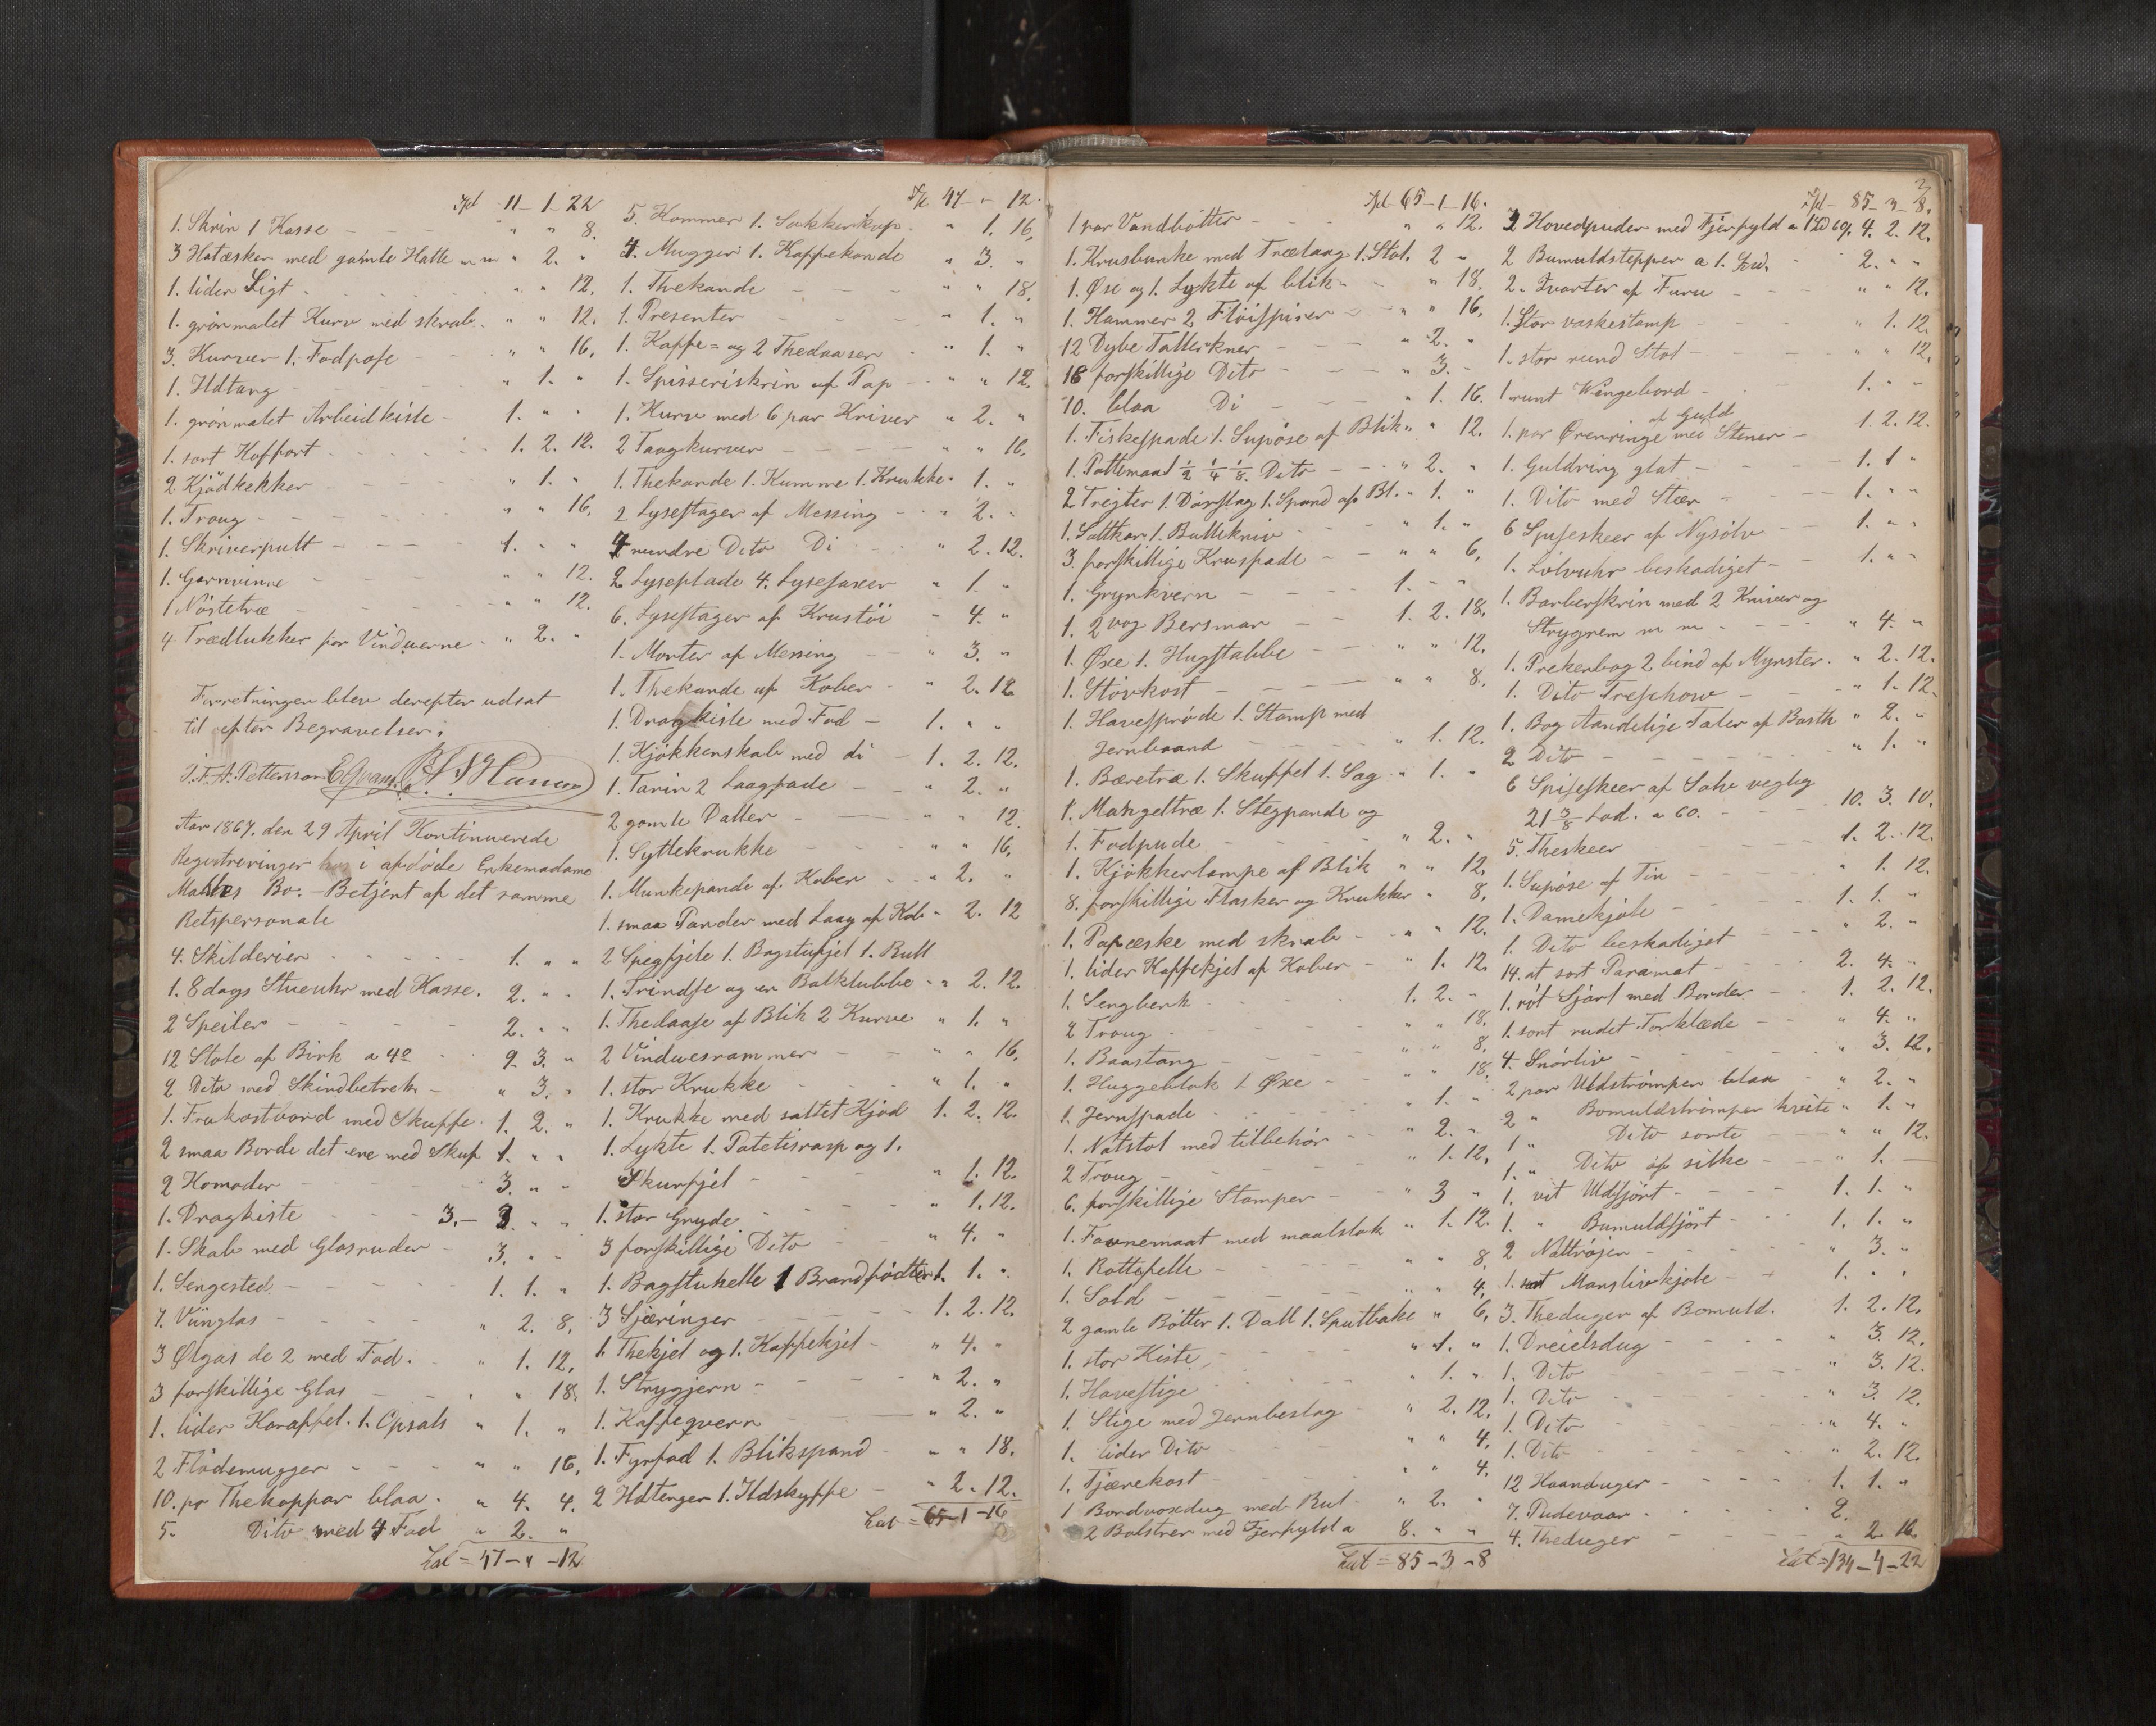 Spd 11 - 1 - 22
1. Skrin 1 Kasse - - " " 8.
3 Hatæsker med gamle Hatte m m " 2. "
1. liden Sigt " " 12.
1. grönmalet Kurv med skrab. " " 12.
3. Kurver 1. Fodpose " " 16.
1. Ildtang " 1. "
1. grönmalet Arbeidkiste - 1. " "
1. sort Koffort 1. 2. 12.
2 Kjödkekker " 1. "
1. Troug " " 16.
1. Skriverpult - - - 1. " "
1. Garnvinne " " 12.
1 Nöstetræ " " 12.
4. Trædlukker for Vinduerne - " 2. "
Forretningen blev derefter udsat
til efter Begravelsen.
J. F. A. Pettersson
Aar 1867. den 29 April Kontinuerede
Registreringen hos i afdöde Enkemadame
Bo. - Betjent af det samme
Retspersonale
4. Skilderier 1. " "
1. 8 dags Stueuhr med Kasse. 2. " "
2 Speiler 2. " "
12 Stole af Birk a 42 9. 3. "
2 Dito med Skindbetrek - " 3. "
1. Frukostbord med Skuffe. 1. 2. "
2 smaa Borde det ene med Skuf 1. " "
2 Komoder 3. " "
1. Dragkiste 3. - " "
1. Skab med Glasruder - 3. " "
1. Sengested 1. 1. "
7. Viinglas " 2. 8.
3 Ølgas de 2 med Fod. " 1. 12.
3 forskillige Glas " " 18.
1. liden Karaffel. 1. Opsats " 1. "
2 Flödemugger " " 16.
10. pr Thekoppar blaa. " 4. 4.
5. Dito med 4 Fad " 2. "
Lat = 47 - " - 12
Spd 47 - " - 12.
5. Kommer 1. Sukkerkop. " 1. 16.
4. Mugger 1. Kaffekande " 3. "
1. Thekande " " 18.
1. Presenter " 1. "
1. Kaffe= og 2 Thedaaser " 1. "
1. Spisseriskrin af Pap " " 12.
1. Kurv med 6 par Kniver " 2. "
2 Taagkurver " " 16.
1. Thekande 1. Kumme 1. Krukke " 1. "
2 Lysestager af Messing " 2. "
4 mindre Dito Di " 2. 12.
2 Lyseplade 4. Lysesaxer " 1. "
6. Lysestager af Krustöi " 4. "
1. Morter af Messing " 3. "
1. Thekande af Kober " 2. 12
1. Dragkiste med Fod - 1. " "
1. Kjökkenskab med di - 1. 2. 12.
1. Tarin 2 Laagfade " 2. "
2 gamle Daller " " 12.
1. Syltekrukke " " 16.
1. Munkepande af Kober " 2. "
1. smaa Pander med Laag af Kob " 2. 12
2 Spegfjele 1. Bagstufjel 1. Rull
1. Trindse og en Balklubbe " 2. 12.
1. Thedaase af Blik 2 Kurve " 1. "
2 Vinduesrammer " " 16.
1. stor Krukke " 1. "
1. Krukke med saltet Kjöd 1. 2. 12.
1. Lykte 1. Potetisrasp og 1.
Skurfjel " 1. 12.
1. stor Gryde " 1. 12.
3 forskillige Dito " 4. "
1. Bagstuhelle 1 Brandfödter 1. 1. "
3 Sjæringer 1. 2. 12.
1. Thekjel og 1. Kaffekjel - " 4. "
1. Strygjern " 2. "
1. Kaffeqvern " 2. "
1. Fyrfad 1. Blikspand " " 18.
2 Ildtenger 1. Ildskyffe " 2. 12.
Lat = 65 - 1 - 16
Spd 65 - 1 - 16.
1 par Vandbötter " " 12.
1. Krusbunke med Trælaag 1. Stol. 2 "
1. Øse og 1. Lykte af blik " " 18.
1. Hammer 2 Flöispiser " " 16.
12 Dybe Tallerkner " 2. "
18 forskillige Dito " 3. "
10. blaa Di " 1. 16.
1. Fiskespade 1. Supöse af Blik " " 12.
1. Pottemaal 1/2 1/4 1/8. Dito " 2. "
2 Tregter 1. Dörslag 1. Spand af Bl. " 1. "
1. Saltkar 1. Bullekniv " 1. "
3. forskillige Kruspade " " 6.
1. Grynkvern 1. " "
1. 2 vog Bersmar 1. 2. 18.
1. Øxe 1. Hugstabbe " " 12.
1. Stövkost " " 8.
1. Havespröde 1. Stamp med
Jernbaand " 1. 12.
1. Bæretræ 1. Skuffel 1. Sag " 1. "
1. Mangeltræ 1. Stegpande og
1. Fodpude " 2. "
1. Kjökkenlampe af Blik " " 12.
8. forskillige Flasker og Krukker " 8.
1. Papæske med skrab " " 12.
1. liden Kaffekjel af Kober " 1. 12.
1. Sengbenk 1. 2. "
2 Troug " " 18.
1. Baastang " " 8.
1. Huggeblok 1. Øxe " " 18.
1. Jernspade " 1. "
1. Natstol med tilbehör " 2. "
2 Troug " 1. 12.
6. forskillige Stamper " 3 "
1. Favnemaat med maalstok " 1. 12.
1. Rottefelle " " 8.
1. Sold " " 4.
2 gamle Bötter 1. Dall 1. Sputbake " 6.
1. stor Kiste " 1. "
1. Havestige " 1. "
1. Stige med Jernbeslag " 2. 12.
1. liden Dito " " 4.
1. Tjærekost " " 4.
1 Bordvoxdug med Rul " 2. "
2 Bolstrer med Fjerfyld a 8. " "
Lat = 85 - 3 - 8
Spd - 85 - 3 - 8.
2 Hovedpuder med Fjerfyld a 69. 4. 2. 12.
2 Bumuldstepper a 1. Spd. 2. " "
2. Kvarter af Furu " " 12.
1. Stor vaskestamp " 1. 12.
1. stor rund Stol " " 12.
1 runt Vingebord 1. " "
af Guld
1. par Ørenringe med Stener 1. 2. 12.
1. Guldring glat 1. 1 "
1. Dito med Sten 1. " "
6 Spiseskeer af Nysölv 1. " "
1. Sölvuhr beskadiget 1. " "
1. Barberskrin med 2 Kniver og
Strygrem m m " 4. "
1. Prekenbog 2 bind af Mynster. " 2. 12.
1. Dito Treschow " 1. 12.
1. Bog Aandelige Taler af Barth " 2. "
2 Dito " 1. "
6 Spiseskeer af Sölv veglig
21 3/8 Lod. a 60. 10. 3. 10.
5. Theskeer 1. 2. 12.
1. Supöse af Tin " 1. 12.
1. Damekjole 1. 1. "
1. Dito beskadiget " 2. "
14. at sort Paramat 2. 4. "
1. röt Sjört med Border 1. 2. 12.
1. sort rudet Torklæde " 4. "
4. Snörliv " 3. 12.
2 par Uldströmper blaa " 2. "
2 " Bomuldströmper hvite " 1. "
1 " Dito sorte " " 12.
1. " Dito af silke " 1. -
1. vit Uldsjört 1. 1. "
1. " Bumuldsjört 1. 1. "
2 Nattröjer " 3. "
1. sort Manslivkjole 1. " "
3. Theduger af Bomuld. 1. 2. 12.
1. Dreielsdug " 3. 12.
1. Dito " 3. 12.
1. Dito " 3. 12.
1. Dito " 4. "
1. Dito " 2. 12.
12 Haanduger 1. 1. "
7. Pudevaar 2.
4. Theduger " 2. 16.
Lat = 134 - 4 - 22